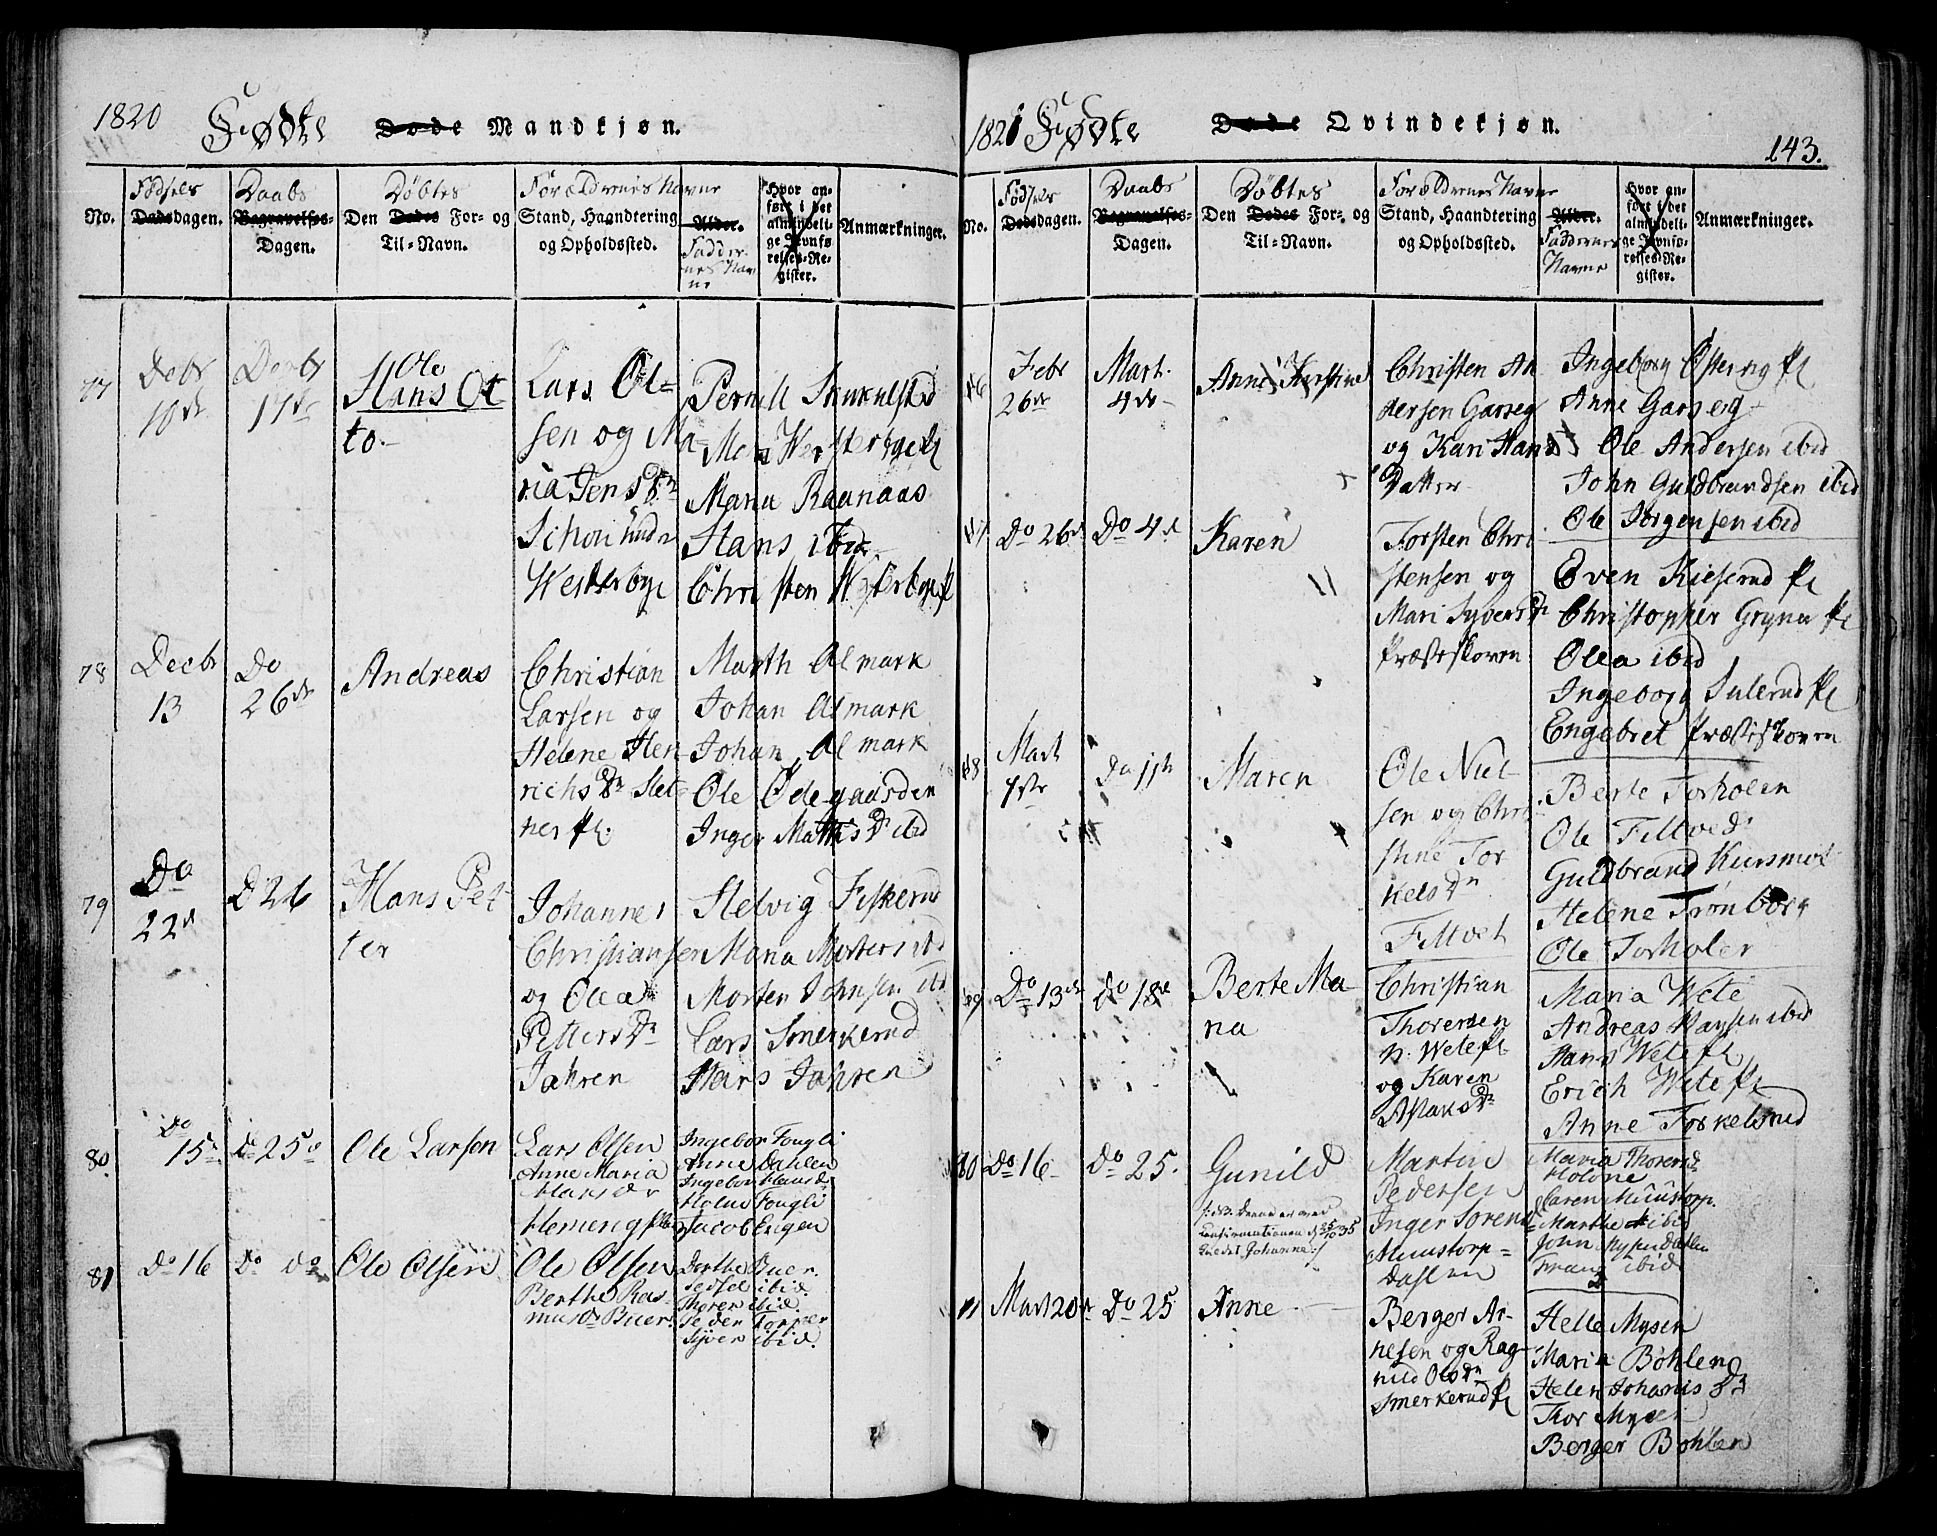 1820 Fødte Døde Mandkjøn.
No.
Fødsels
Dødsdagen.
Daabs
Begravelses-
Dagen.
Døbtes
Den Dødes For- og
Til-Navn.
Forældrenes Navne
Stand, Haandtering
og Opholdssted.
Alder.
Fadder-
nes Nav
ne
Hvor an-
ført i det
almindeli-
ge Jevnfø-
relses-Re-
gister.
Anmærkninger.
77
Decbr
10de
Decbr
17de
Ole
Hans Ot
to.
Lars Ol-
sen og Ma-
ria Jens Dr
Schou under
Westerbye
Pernill
Westerbye
Maria Raanaas
Hans ibid
Christen Westerbye
78
Decbr
13
Do
26de
Andreas
Christian
Larsen og
Helene Hen
richs Dr Slet
ner pl.
Marth Almark
Johan Almark
Johan Almark
Ole Ødegaarden
Inger Mathis Dr ibid
79
Do
22d
D 26
Hans Pet
ter
Johannes
Christiansen
og Olea
Petters Dr
Jahren
Helvig Fiskerud
Maria Mortens ibd
Morten Johnsen ibd
Lars Smerkerud
Hans Jahren
80.
Do
15de
Do 25de
Ole Larsen
Lars Olsen
Anne Maria
Hans Dr
Heming pl
Ingebor Fougli
Anne Dahlen
Ingebor Hans Dr
Holm Fougli
Jacob Engen
81
Do 16
Do Do
Ole Olsen
Ole Olsen
Berthe Ras-
mus Dr Buer.
Berthe Buer.
Sedsel ibid.
Thorer ibid.
Peder Torper
Syver ibid.
1821 Fødte Døde Qvindekjøn.
143.
No.
Fødsels
Dødsdagen.
Daabs
Begravelses-
Dagen.
Døbtes
Den Dødes For- og
Til-Navn.
Forældrenes Navne
Stand, Haandtering
og Opholdssted.
Alder.
Faddernes
Navne
Hvor an-
ført i det
almindeli-
ge Jevnfø-
relses-Re-
gister.
Anmærkninger.
16
Febr
26de
Mart.
4de
Anne Kirstine
Christen An
dersen Garseg
og Kari Hans
Datter
Ingeborg Østereng pl
Anne Garseg
Ole Andersen ibid
John Guldbrandsen ibid
Ole Jørgensen ibid
17
Do 26de
Do 4d
Karen
Torsten Chri
stensen og
Mari Syvers Dr
Præsteskoven
Even Kieserud pl
Christopher Gryna pl
Olea ibid
Ingeborg Sulerud pl
Engebret Præsteskoven
18
Mart
7de
Do 11te
Maren
Ole Niel
sen og Chri
stine Tor
kels Dr
Filtvet
Berte Torholen
Ole Filtvedt
Guldbrand
Helene Trønborg
Ole Torholen
19
Do 13de
Do 18de
Berte Ma
ria
Christian
Thoresen
N. Wete pl
og Karen
Aslaks Dr
Maria Wete
Andreas
Hans Wete pl
Erich Wete pl
Anne Torkelsrud
20
Do 16
Do 25.
Gunild
Konfirmationen d 25/10 35
Johanne :/
Martin
Pedersen
Inger Sorens Dr
Muustorp-
Dahlen
Maria Thorers Dr
Holone
Caren Muustorp.
Marthe ibid
John
Frans ibid
21
Mart 20de
Do 25
Anne
Berger Ar-
nesen og Rag-
nild Ols Dr
Smerkerud pl
Helle Mysen
Maria Bøhlen
Helen Johanis Dr
Thor Mysen
Berger Bøhlen